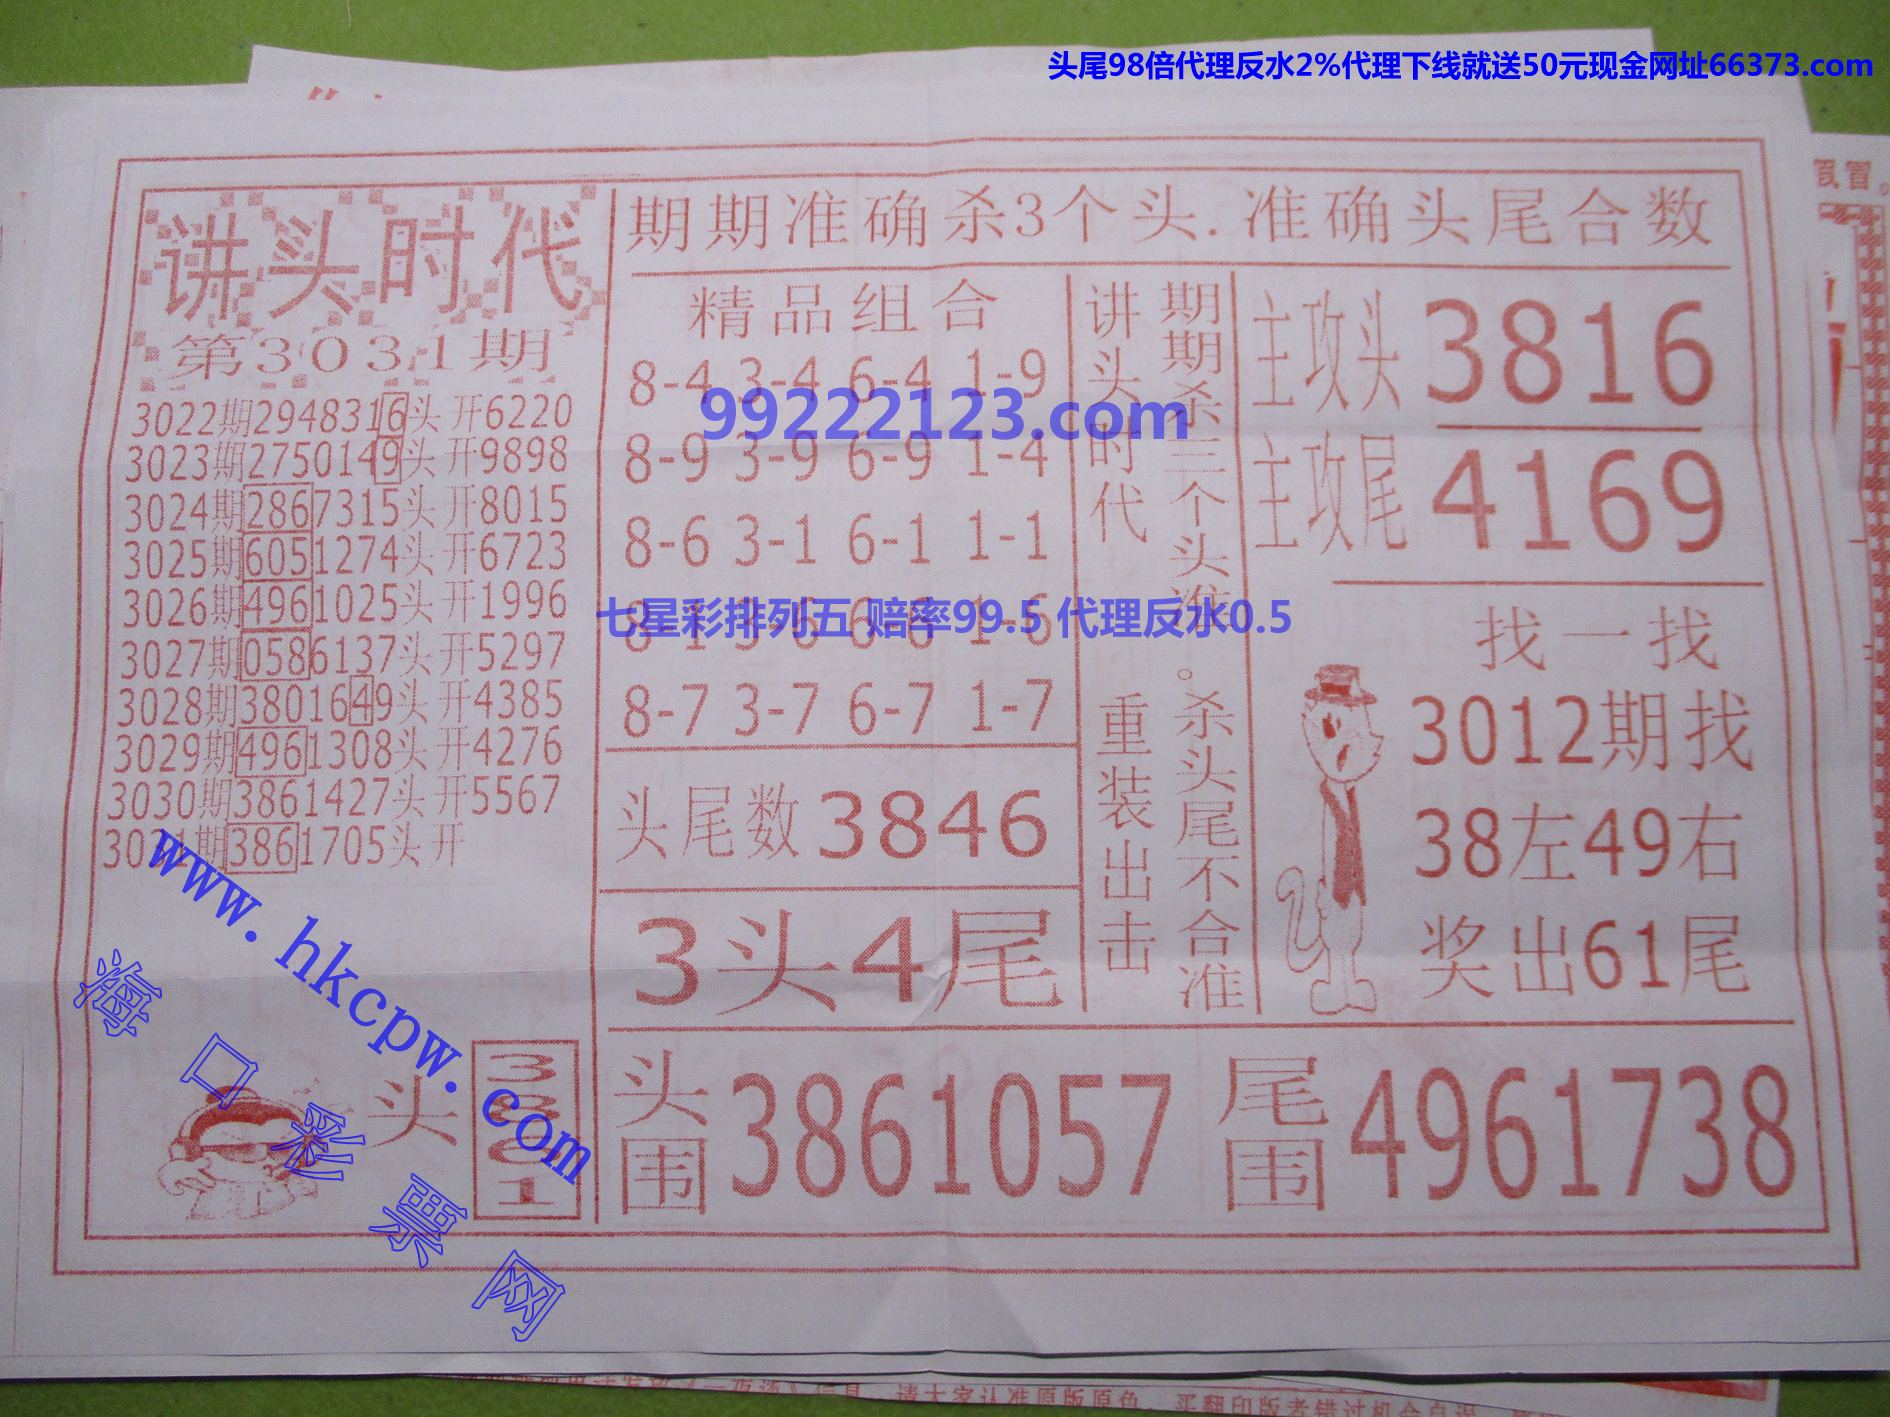 头尾98倍代理反水2%代理下线就送50元现金网址66373.com
假冒。
讲头时代
第3031期
3022期2948316头 开6220
3023期2750149头 开9898
3024期2867315头 开8015
3025期6051274头 开6723
3026期4961025头 开1996
3027期0586137头 开5297
3028期3801649头 开4385
3029期4961308头 开4276
3030期3861427头 开5567
3031期3861705头 开
头
3861
期期准确杀3个头.准确头尾合数
精品组合
8-4 3-4 6-4 1-9
99222123.com
8-9 3-9 6-9 1-4
8-6 3-1 6-1 1-1
七星彩排列五 赔率99.5 代理反水0.5
8-1 3-6 6-8 1-6
8-7 3-7 6-7 1-7
头尾数3846
3头4尾
讲头时代 重装出击
期期杀三个头准。杀头尾不合准
主攻头 3816
主攻尾 4169
找一找
3012期找
38左49右
奖出61尾
头围 3861057
尾围 4961738
www.hkcpw.com
海口彩票网
请大家认准原版原色